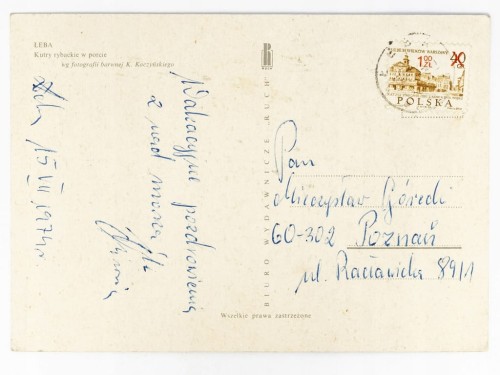 ŁEBA
Kutry rybackie w porcie
wg fotografii barwnej K. Kaczyńskiego
Wakacyjne pozdrowienia
z nad morza śle
Łeba, 15 VII 1974 r
BIURO WYDAWNICZE „RUCH"
RUCH
1,00
ZŁ
40
GR
POLSKA
Pan
Mieczysław Górecki
60-302 Poznań
ul. Racławicka 89/1
Wszelkie prawa zastrzeżone